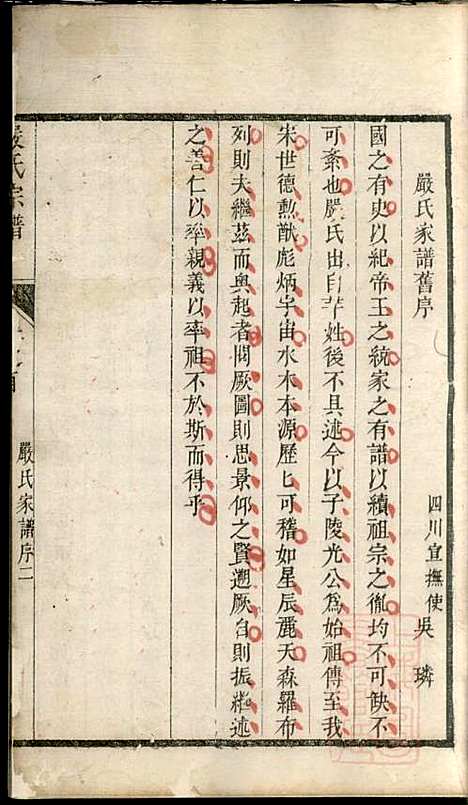 嚴氏家譜舊序
四川宣撫使吳璘
國之有史以紀帝王之統家之有譜以續祖宗之胤均不可缺不
可紊也嚴氏由自芉姓後不具述今以子陵光公爲始祖傳至我
宋世德勲猷彪炳宇宙水木本源歷匕可稽如星辰麗天森羅布
列則夫繼茲而與起者閱厥圖則思景仰之賢遡厥自則振繼述
之善仁以率親義以率祖不於斯而得乎
嚴氏宗譜
嚴氏家譜序二